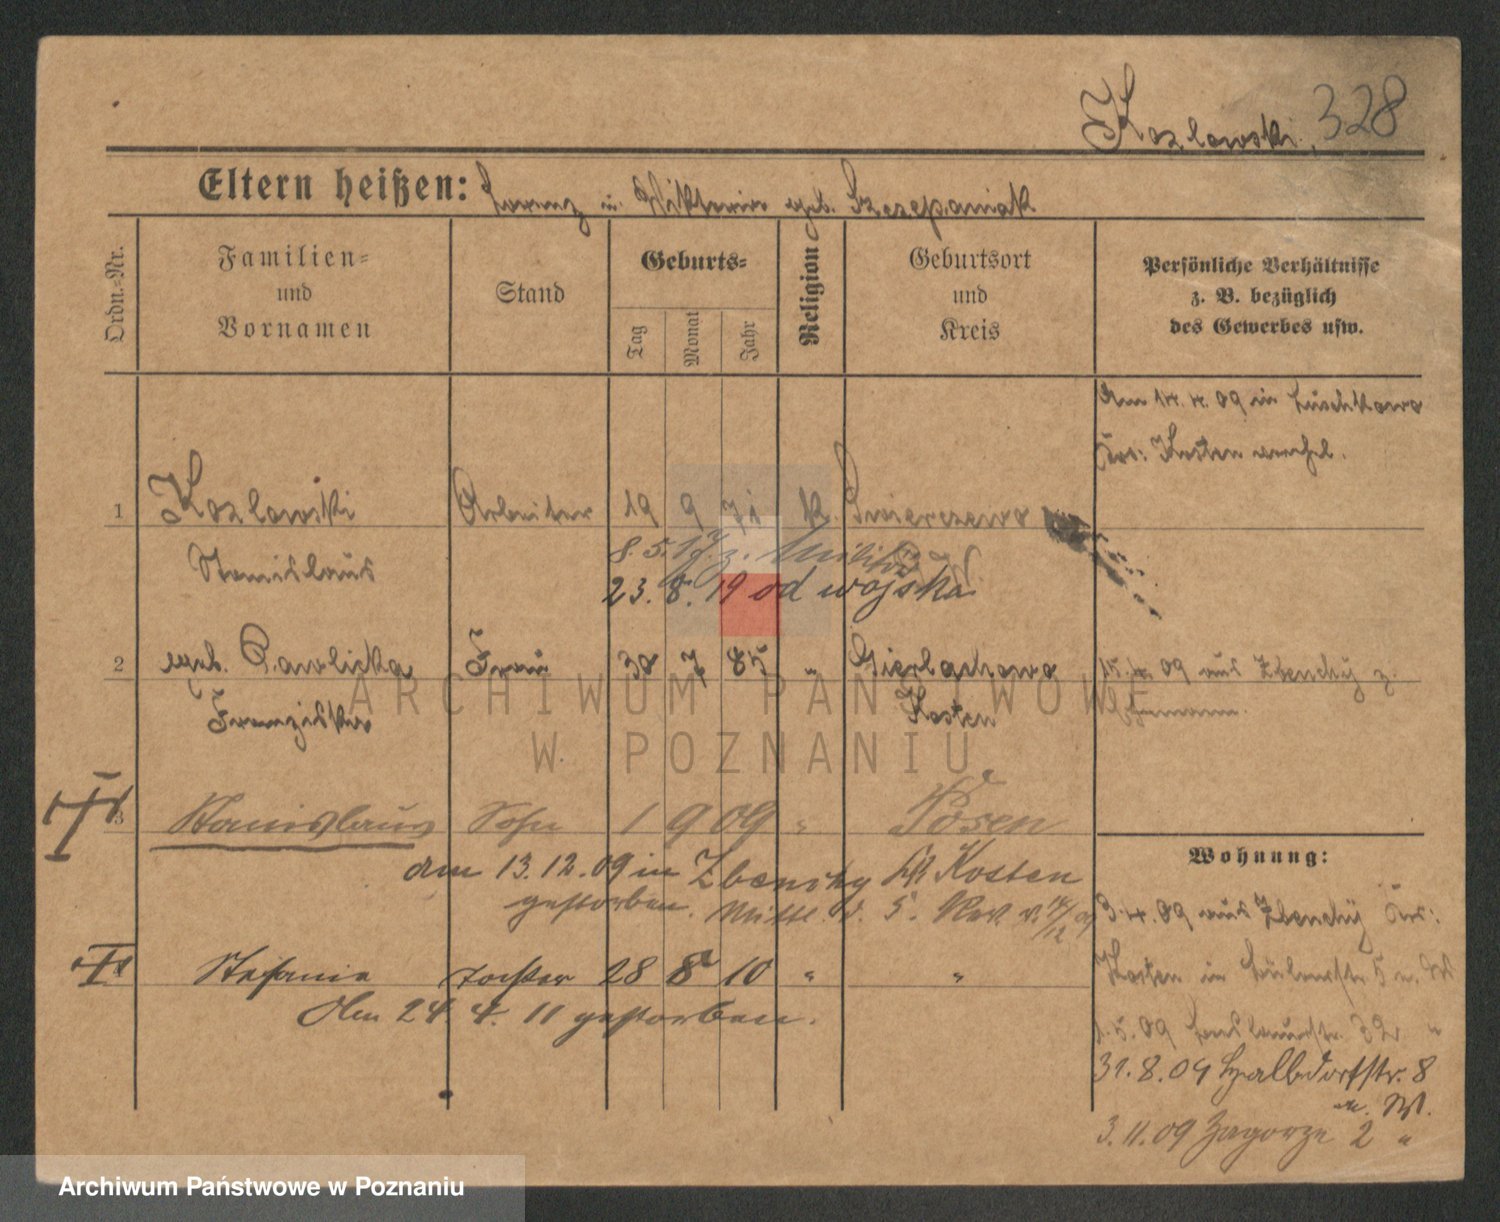 Kozlowski. 328
Eltern heißen: Lorenz u. Wiktoria geb. Szczepaniak
Ordn.-Nr.
Familien-
und
Vornamen
Stand
Geburts-
Tag
Monat
Jahr
Religion
Geburtsort
und
Kreis
Persönliche Verhältnisse
z. B. bezüglich
des Gewerbes usw.
Am 14.4.09 in Luschkowo
Krs: Kosten verehel.
1 Kozlowski Arbeiter 19 9 71 k. Swierczewo
Stanislaus
8.5.17 z. Militär
23. 8. 19 od wojska
2 geb. Pawlicka Frau 30 7 85 " Gierlachowo
Franziska Kosten
15.4.09 aus Zbenchy z.
Ehemann.
3 Stanislaus Sohn 1 9 09 " Posen
am 13.12.09 in Zbenchy Kr Kosten
gestorben. Mittl. d. 5. Rev. v. 14/12 09
Stefania Tochter 28 8 10 " "
Am 24. 4. 11 gestorben.
Wohnung:
3.4.09 aus Zbenchy Krs:
Kosten in 5 n.
1.5.09 32 "
31.8.09 Halbdorfstr. 8
n. W.
3.11.09 Zagorze 2 "
ARCHIWUM PAŃSTWOWE
W POZNANIU
Archiwum Państwowe w Poznaniu